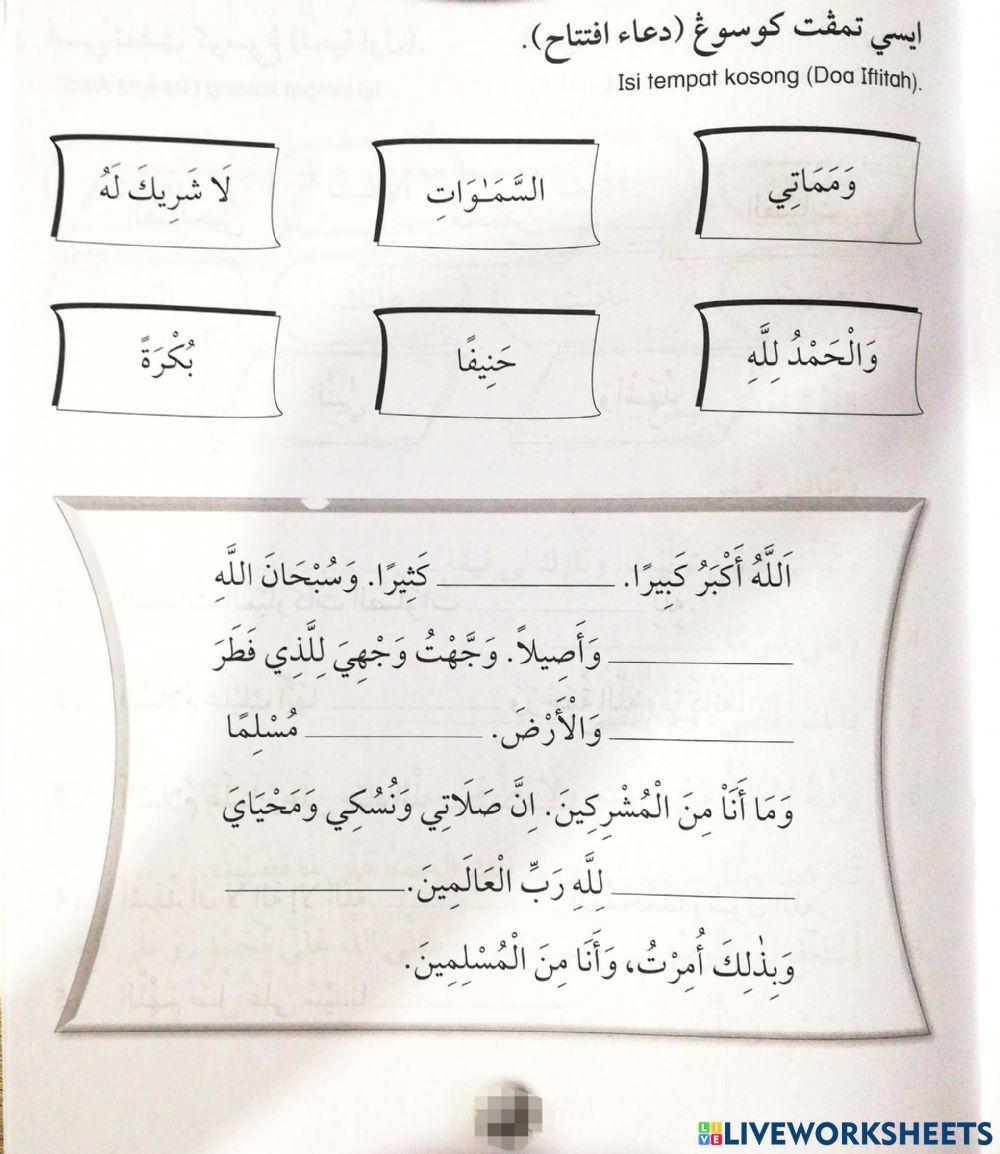 ايسي تمڤت كوسوڠ (دعاء افتتاح).
Isi tempat kosong (Doa Iftitah).
وَمَمَاتِي السَّمَـٰوَاتِ لَا شَرِيكَ لَهُ
وَالْحَمْدُ لِلَّهِ حَنِيفًا بُكْرَةً
اَللَّهُ أَكْبَرُ كَبِيرًا. ____________ كَثِيرًا. وَسُبْحَانَ اللَّهِ
____________ وَأَصِيلاً. وَجَّهْتُ وَجْهِيَ لِلَّذِي فَطَرَ
____________ وَالْأَرْضَ. ____________ مُسْلِمًا
وَمَا أَنَاْ مِنَ الْمُشْرِكِينَ. اِنَّ صَلَاتِي وَنُسُكِي وَمَحْيَايَ
____________ لِلَّهِ رَبِّ الْعَالَمِينَ. ____________
وَبِذٰلِكَ أُمِرْتُ، وَأَنَا مِنَ الْمُسْلِمِينَ.
LIVEWORKSHEETS